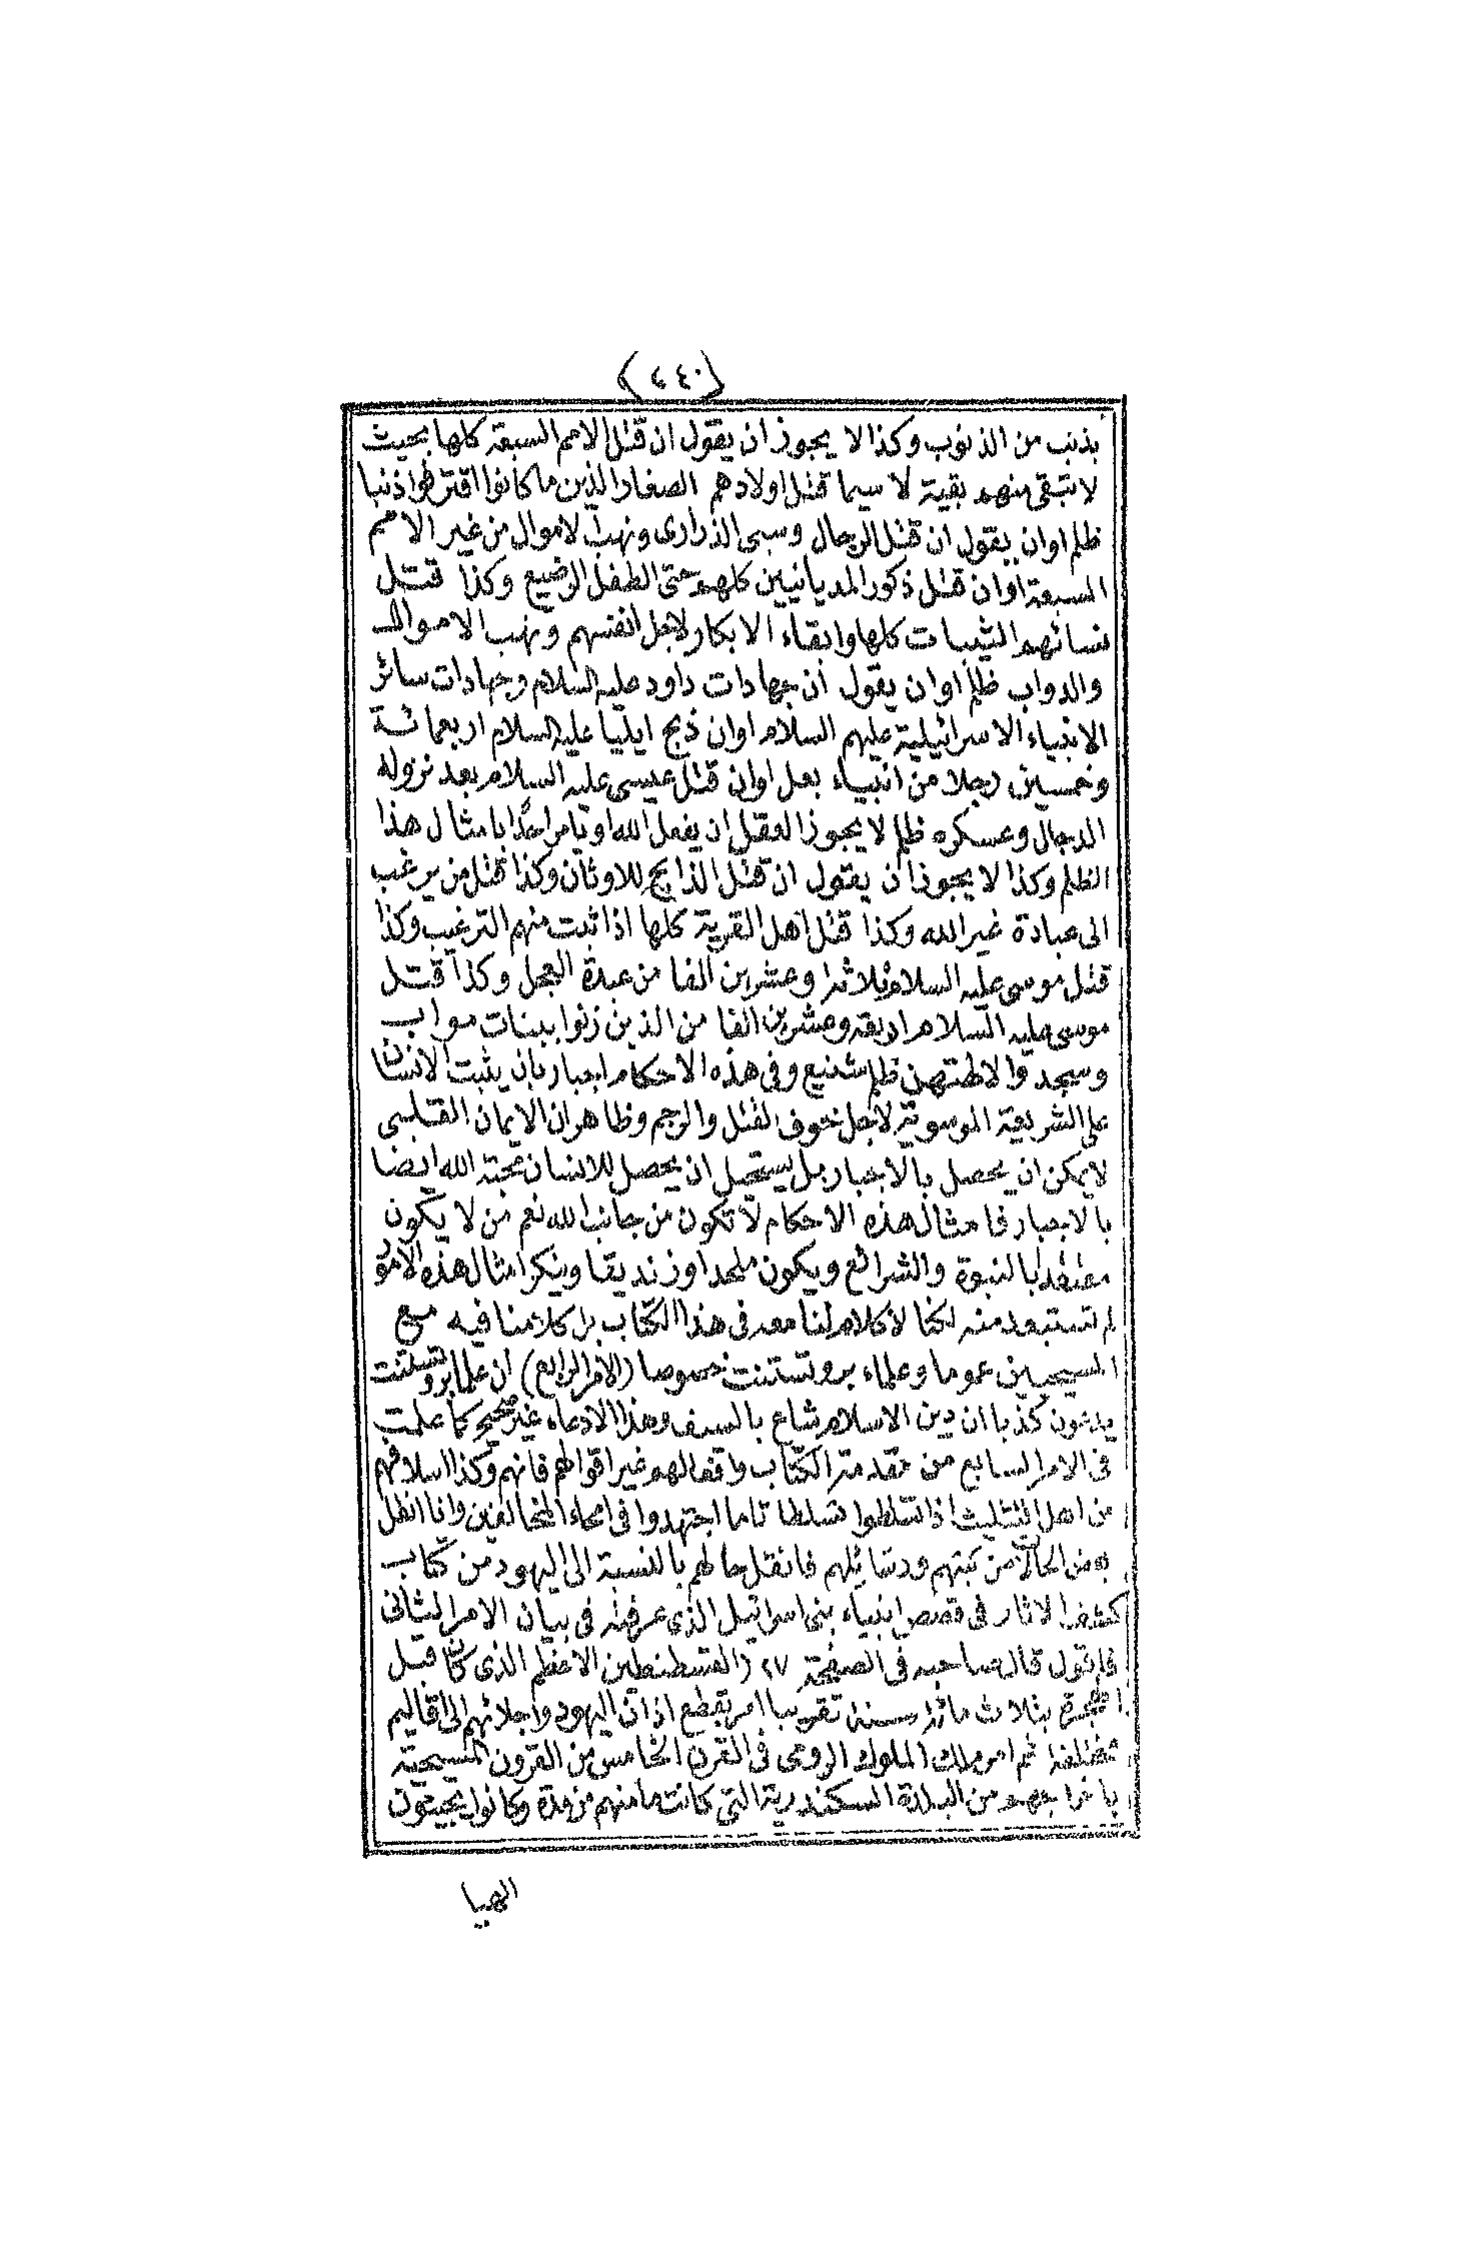 (٤٤٠)
بذنب من الذنوب وكذا لا يجوز ان يقول ان قتل الامم السبعة كلها بحيث
لا تبقى منهم بقية لا سيما قتل اولادهم الصغار الذين ما كانوا اقترفوا ذنبا
ظلم اوان يقول ان قتل الرجال وسبى الذرارى ونهب الاموال من غير الامم
السبعة اوان قتل ذكور المديانيين كلهم حتى الطفل الرضيع وكذا قتل
نسائهم الثيبات كلها وابقاء الابكار لاجل انفسهم ونهب الاموال
والدواب ظلم اوان يقول ان جهادات داود عليه السلام وجهادات سائر
الانبياء الاسرائيلية عليهم السلام اوان ذبح ايليا عليه السلام اربعمائة
وخمسين رجلا من انبياء بعل اوان قتل عيسى عليه السلام بعد نزوله
الدجال وعسكره ظلم لا يجوز العقل ان يفعل الله او يامر احدا بامثال هذا
الظلم وكذا لا يجوز ان يقول ان قتل الذابح للاوثان وكذا قتل من يرغب
الى عبادة غير الله وكذا قتل اهل القرية كلها اذا ثبت منهم الترغيب وكذا
قتل موسى عليه السلام ثلاثة وعشرين الفا من عبدة العجل وكذا قتل
موسى عليه السلام اربعة وعشرين الفا من الذين زنوا ببنات مواب
وسجدوا لالهتهن ظلم شنيع وفى هذه الاحكام اجبار بان يثبت الانسان
على الشريعة الموسوية لاجل خوف القتل والرجم وظاهر ان الايمان القلبى
لا يمكن ان يحصل بالاجبار بل يستحيل ان يحصل للانسان محبة الله ايضا
بالاجبار فامثال هذه الاحكام لا تكون من جانب الله نعم من لا يكون
معتقدا بالنبوة والشرائع ويكون ملحدا او زنديقا وينكر امثال هذه الامور
لم تستبعد منه لكنا لا كلام لنا معه فى هذا الكتاب بل كلامنا فيه مع
المسيحيين عموما وعلماء بروتستنت خصوصا (الامر الرابع) ان علما بروتستنت
يدعون كذبا ان دين الاسلام شاع بالسيف وهذا الادعاء غير صحيح كما علمت
فى الامر السابع من مقدمة الكتاب وافعالهم غير اقوالهم فانهم وكذا اسلافهم
من اهل التثليث اذا تسلطوا تسلطا تاما اجتهدوا فى امحاء المخالفين وانا انقل
بعض الحالات من كتبهم ورسائلهم فانقل حالهم بالنسبة الى اليهود من كتاب
كشف الاثار فى قصص انبياء بنى اسرائيل الذى عرفته فى بيان الامر الثانى
فاقول قال صاحبه فى الصفحة ٢٧ (القسطنطين الاعظم الذى كان قبل
الهجرة بثلاث مائة سنة تقريبا امر بقطع اذان اليهود واجلائهم الى اقاليم
مختلفة ثم امر ملك الملوك الرومى فى القرن الخامس من القرون المسيحية
باخراجهم من البلدة السكندرية التى كانت مامنهم من مدة وكانوا يجيئون
اليها